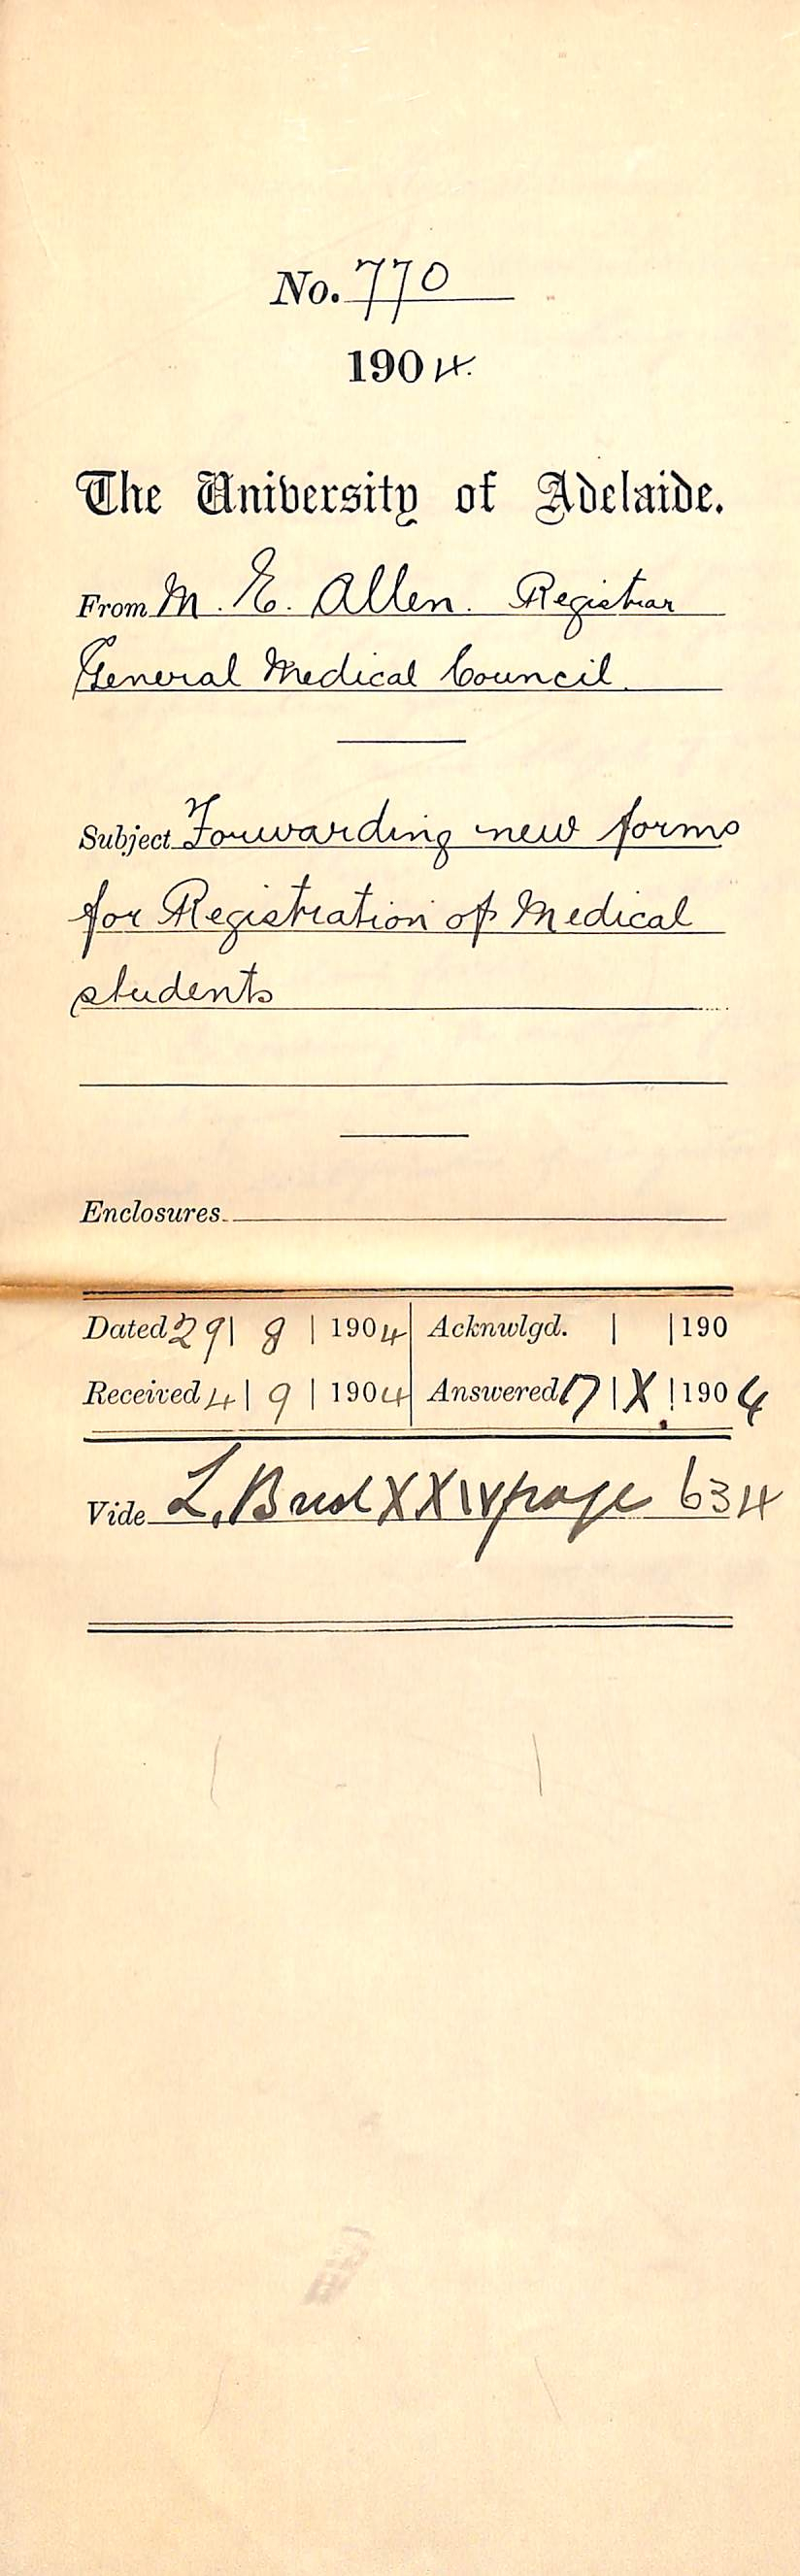 No. 770
1904.
The University of Adelaide.
From M. E. Allen. Registrar
General Medical Council.
Subject Forwarding new forms
for Registration of Medical
students
Enclosures
Dated 29 | 8 | 1904 Acknwlgd. | | 190
Received 4 | 9 | 1904 Answered 17 | X | 1904
Vide L. XXIV page 634